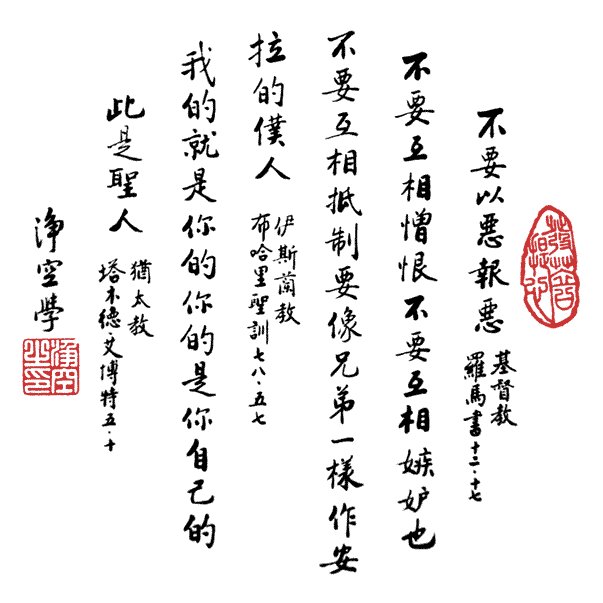 不要以惡報惡
基督教
羅馬書十二·十七
不要互相憎恨不要互相嫉妒也
不要互相抵制要像兄弟一樣作安
拉的僕人
伊斯蘭教
布哈里聖訓七八·五七
我的就是你的你的是你自己的
此是聖人
猶太教
塔木德·艾博特五·十
淨空學
淨空之印
發菩提心